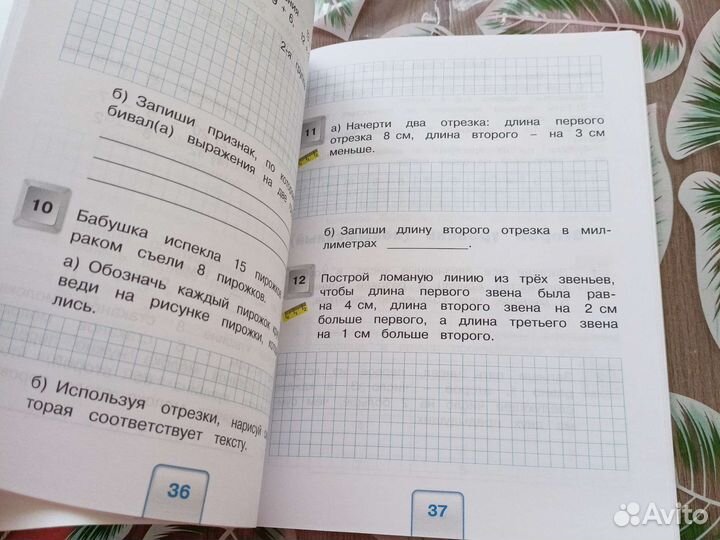 9 + 6, 12
2-я
б) Запиши признак, по
бивал(а) выражения на две
10
Бабушка испекла 15
раком съели 8 пирожков.
а) Обозначь каждый пирожок
веди на рисунке пирожки,
лись.
б) Используя отрезки, нарисуй
торая соответствует тексту.
36
11
а) Начерти два отрезка: длина первого
отрезка 8 см, длина второго – на 3 см
меньше.
б) Запиши длину второго отрезка в мил-
лиметрах __________.
12
Построй ломаную линию из трёх звеньев,
чтобы длина первого звена была рав-
на 4 см, длина второго звена на 2 см
больше первого, а длина третьего звена
на 1 см больше второго.
37
Avito